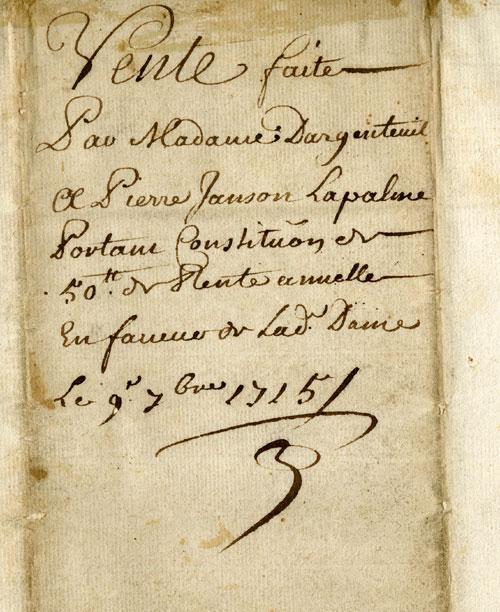 Vente faite
Par Madame Dargenteuil
A Pierre Janson Lapalme
Portant Constituõn de
50ᵗᵗ. de Rente annuelle
En faveur de Ladᵉ. Dame
Le 9ᵉ 7bre 1715
3